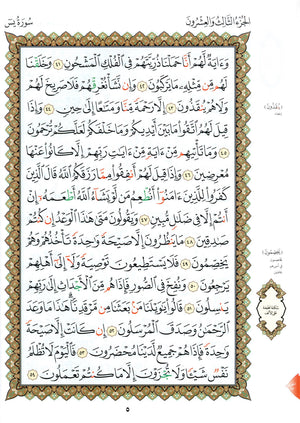 الجزء الثالث والعشرون
سورة يس
وَءَايَةٌ لَّهُمْ أَنَّا حَمَلْنَا ذُرِّيَّتَهُمْ فِي الْفُلْكِ الْمَشْحُونِ ٤١ وَخَلَقْنَا
لَهُم مِّن مِّثْلِهِ مَا يَرْكَبُونَ ٤٢ وَإِن نَّشَأْ نُغْرِقْهُمْ فَلَا صَرِيخَ لَهُمْ
وَلَا هُمْ يُنقَذُونَ ٤٣ إِلَّا رَحْمَةً مِّنَّا وَمَتَاعًا إِلَىٰ حِينٍ ٤٤ وَإِذَا
قِيلَ لَهُمُ اتَّقُوا مَا بَيْنَ أَيْدِيكُمْ وَمَا خَلْفَكُمْ لَعَلَّكُمْ تُرْحَمُونَ
٤٥ وَمَا تَأْتِيهِم مِّنْ ءَايَةٍ مِّنْ ءَايَاتِ رَبِّهِمْ إِلَّا كَانُوا عَنْهَا
مُعْرِضِينَ ٤٦ وَإِذَا قِيلَ لَهُمْ أَنفِقُوا مِمَّا رَزَقَكُمُ اللَّهُ قَالَ الَّذِينَ
كَفَرُوا لِلَّذِينَ ءَامَنُوا أَنُطْعِمُ مَن لَّوْ يَشَاءُ اللَّهُ أَطْعَمَهُ إِنْ
أَنتُمْ إِلَّا فِي ضَلَالٍ مُّبِينٍ ٤٧ وَيَقُولُونَ مَتَىٰ هَٰذَا الْوَعْدُ إِن كُنتُمْ
صَادِقِينَ ٤٨ مَا يَنظُرُونَ إِلَّا صَيْحَةً وَاحِدَةً تَأْخُذُهُمْ وَهُمْ
يَخِصِّمُونَ ٤٩ فَلَا يَسْتَطِيعُونَ تَوْصِيَةً وَلَا إِلَىٰ أَهْلِهِمْ
يَرْجِعُونَ ٥٠ وَنُفِخَ فِي الصُّورِ فَإِذَا هُم مِّنَ الْأَجْدَاثِ إِلَىٰ رَبِّهِمْ
يَنسِلُونَ ٥١ قَالُوا يَاوَيْلَنَا مَن بَعَثَنَا مِن مَّرْقَدِنَا هَٰذَا مَا وَعَدَ
الرَّحْمَٰنُ وَصَدَقَ الْمُرْسَلُونَ ٥٢ إِن كَانَتْ إِلَّا صَيْحَةً
وَاحِدَةً فَإِذَا هُمْ جَمِيعٌ لَّدَيْنَا مُحْضَرُونَ ٥٣ فَالْيَوْمَ لَا تُظْلَمُ
نَفْسٌ شَيْئًا وَلَا تُجْزَوْنَ إِلَّا مَا كُنتُمْ تَعْمَلُونَ ٥٤
٥